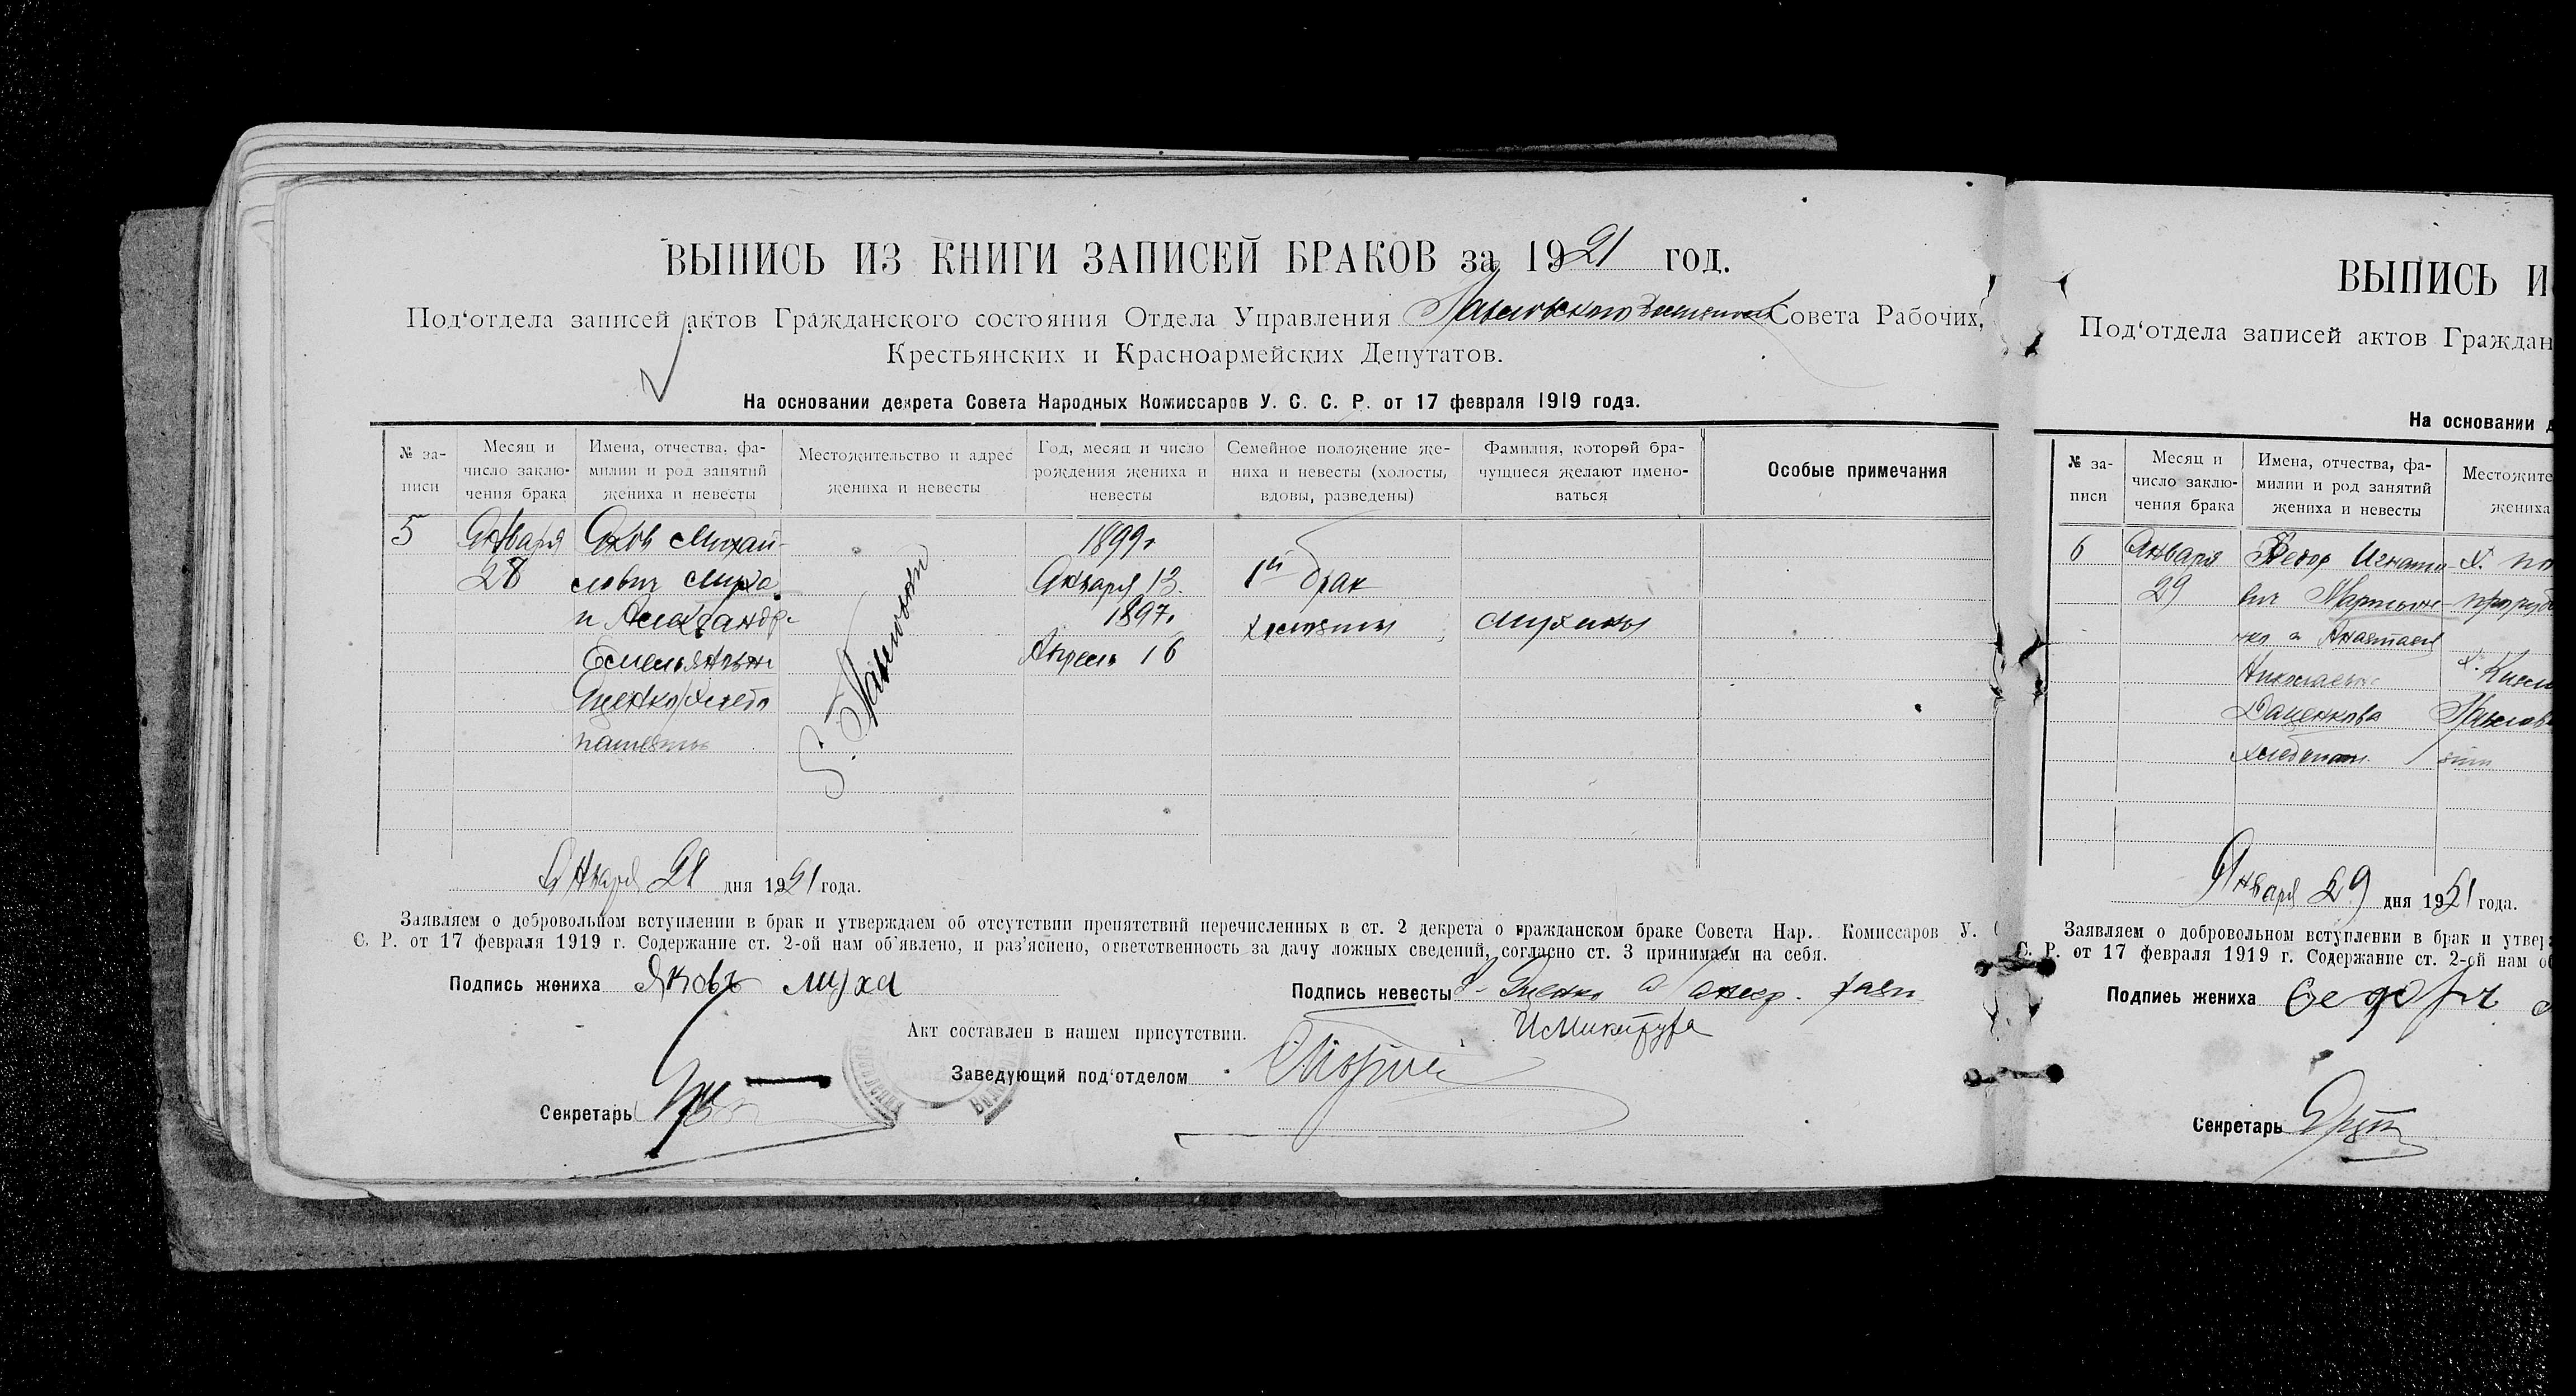 ВЫПИСЬ ИЗ КНИГИ ЗАПИСЕЙ БРАКОВ за 1921 год.
Под‘отдела записей актов Гражданского состояния Отдела Управления Совета Рабочих,
Крестьянских и Красноармейских Депутатов.
На основании декрета Совета Народных Комиссаров У. С. С. Р. от 17 февраля 1919 года.
№ за-
писи
Месяц и
число заклю-
чения брака
Имена, отчества, фа-
милии и род занятий
жениха и невесты
Местожительство и адрес
жениха и невесты
Год, месяц и число
рождения жениха и
невесты
Семейное положение же-
ниха и невесты (холосты,
вдовы, разведены)
Фамилия, которой бра-
чущиеся желают имено-
ваться
Особые примечания
5
Января
28
Яков Михай-
лович Муха
и Александр
Емельяновн
Яценко хлебо
пашцы
С. Павловки
1899г
Января 13.
1897г
Апрель 16
1й брак
холосты
Мухины
Января 28 дня 1921 года.
Заявляем о добровольном вступлении в брак и утверждаем об отсутствии препятствий перечисленных в ст. 2 декрета о гражданском браке Совета Нар. Комиссаров У. С
С. Р. от 17 февраля 1919 г. Содержание ст. 2-ой нам об‘явлено, и раз‘яснено, ответственность за дачу ложных сведений, согласно ст. 3 принимаем на себя.
Подпись жениха Яковъ муха
Подпись невесты Яценко а
Акт составлен в нашем присутствии.
Заведующий под‘отделом
Секретарь
ВЫПИСЬ И
Под‘отдела записей актов Граждан
На основании д
№ за-
писи
Месяц и
число заклю-
чения брака
Имена, отчества, фа-
милии и род занятий
жениха и невесты
Местожите
жениха
6
Января
29
Федор Игнати
вич Мартынe
нко и Анастасия
Николаевн
Даценкова
хлебопаш.
х.
х.
Павлов
Января 29 дня 1921 года.
Заявляем о добровольном вступлении в брак и утвер
С. Р. от 17 февраля 1919 г. Содержание ст. 2-ой нам об
Подпись жениха Федоръ
Секретарь